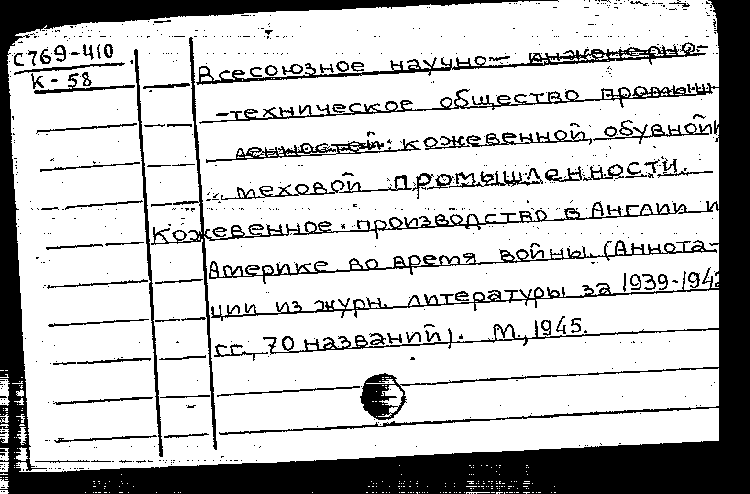 С769-410
К-58
Всесоюзное научно- инженерно-
-техническое общество промыш-
ленностей: кожевенной, обувной и
меховой промышленности.
Кожевенное производство в Англии и
Америке во время войны. (Аннота-
ции из журн. литературы за 1939-1942
гг., 70 названий). М., 1945.